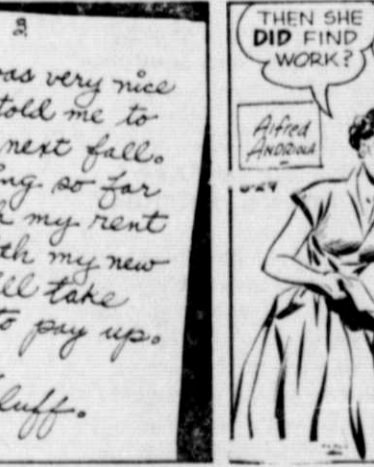 3
was very nice
told me to
next fall.
so far
my rent
my new
take
to pay up.
THEN SHE
DID FIND
WORK?
Alfred
ANDRIOLA